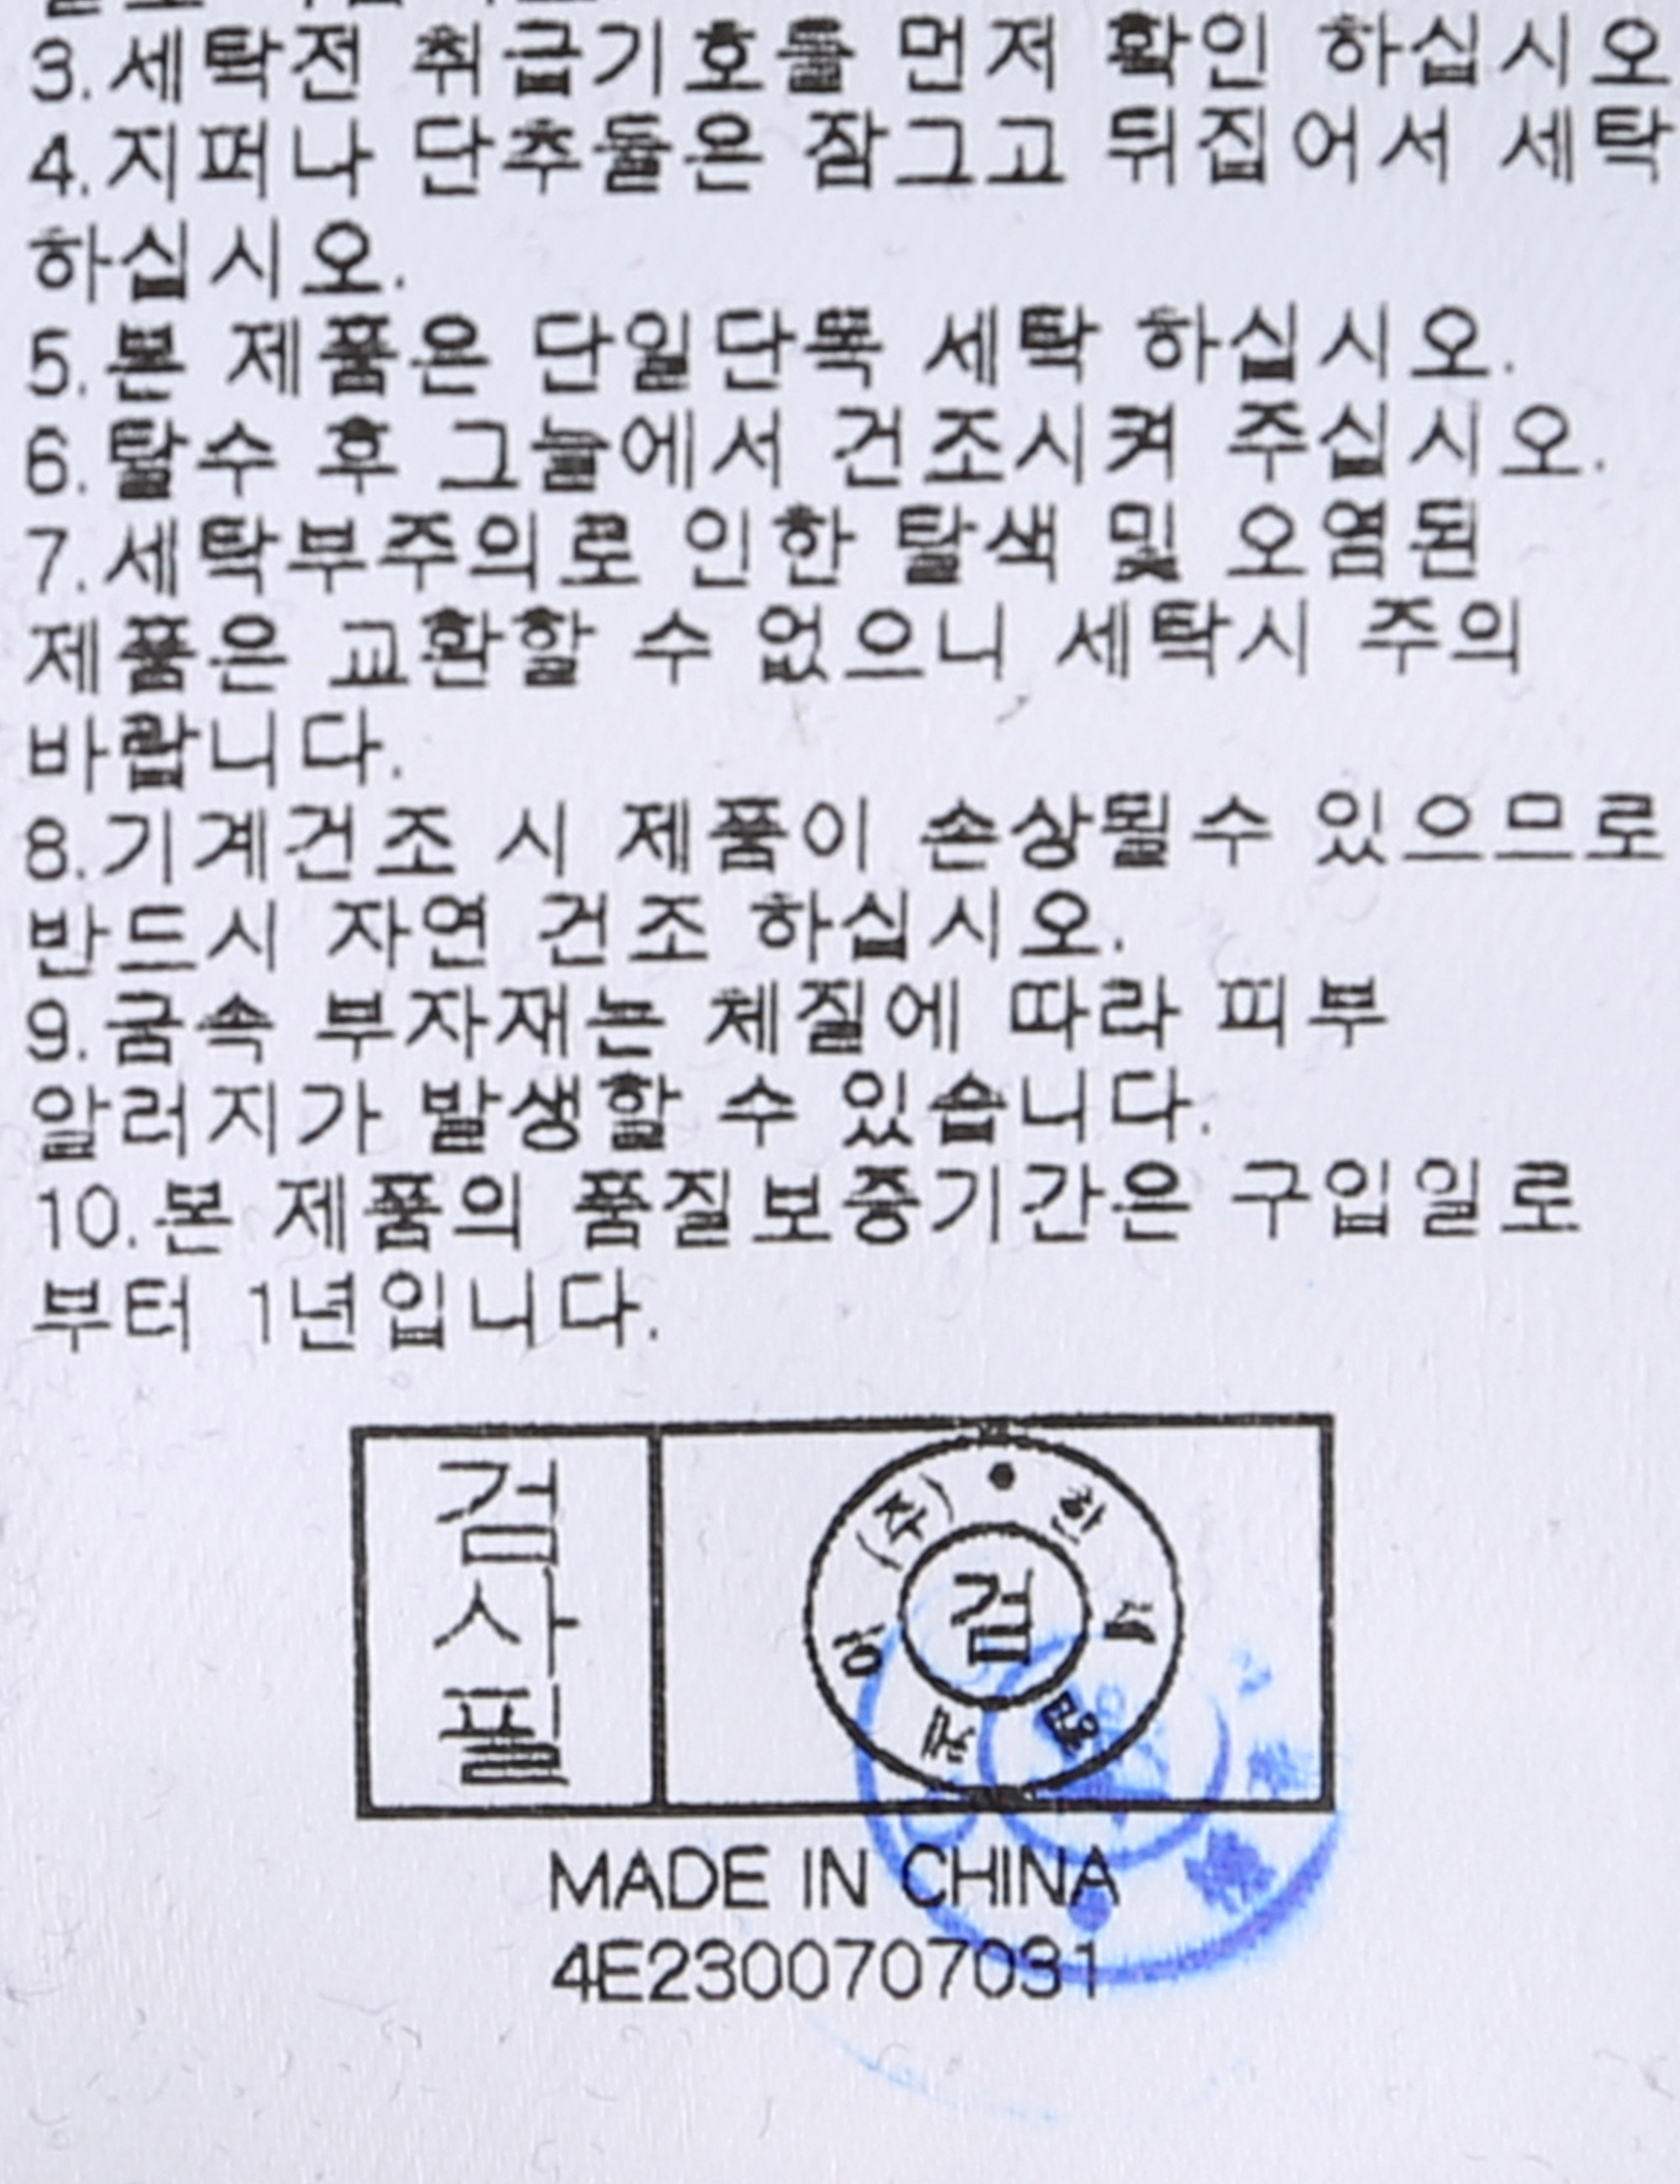 3.세탁전 취급기호를 먼저 확인 하십시오
4.지퍼나 단추들은 잠그고 뒤집어서 세탁
하십시오.
5.본 제품은 단일단독 세탁 하십시오.
6.탈수 후 그늘에서 건조시켜 주십시오.
7.세탁부주의로 인한 탈색 및 오염된
제품은 교환할 수 없으니 세탁시 주의
바랍니다.
8.기계건조 시 제품이 손상될수 있으므로
반드시 자연 건조 하십시오.
9.금속 부자재는 체질에 따라 피부
알러지가 발생할 수 있습니다.
10.본 제품의 품질보증기간은 구입일로
부터 1년입니다.
검사필
(주)
한
검
MADE IN CHINA
4E2300707031